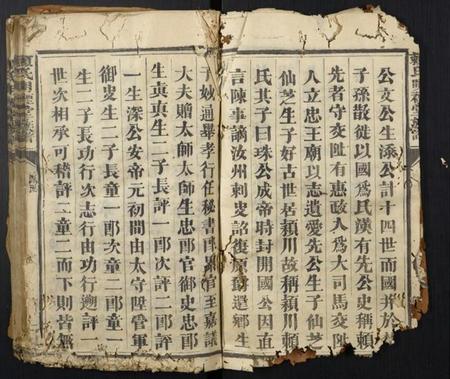 公文公生添公計十四世而國并於
子孫散徙以國為氏漢有先公史稱賴
先者守交趾有惠政人為大司馬交趾
人立忠王廟以志遺愛先公生子仙芝
仙芝生子好古世居潁川故稱潁川賴
氏其子曰珠公成帝時封開國公因直
言陳事謫汝州刺史詔復原勳還鄉生
子妙通舉孝行任秘書郎累官至嘉議
大夫贈太師太師生忠郎官御史忠郎
生真真生二子長評一郎次評二郎評
一生深公安帝元初間由太守陞管軍
御史生二子長童一郎次童二郎童一
生二子長功行次志行由功行遡評一
世次相承可稽評二童二而下則皆無
賴氏